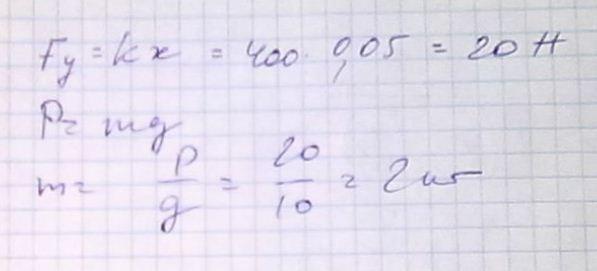 Fу = kx = 400 · 0,05 = 20 Н
P = mg
m = P/g = 20/10 = 2 кг